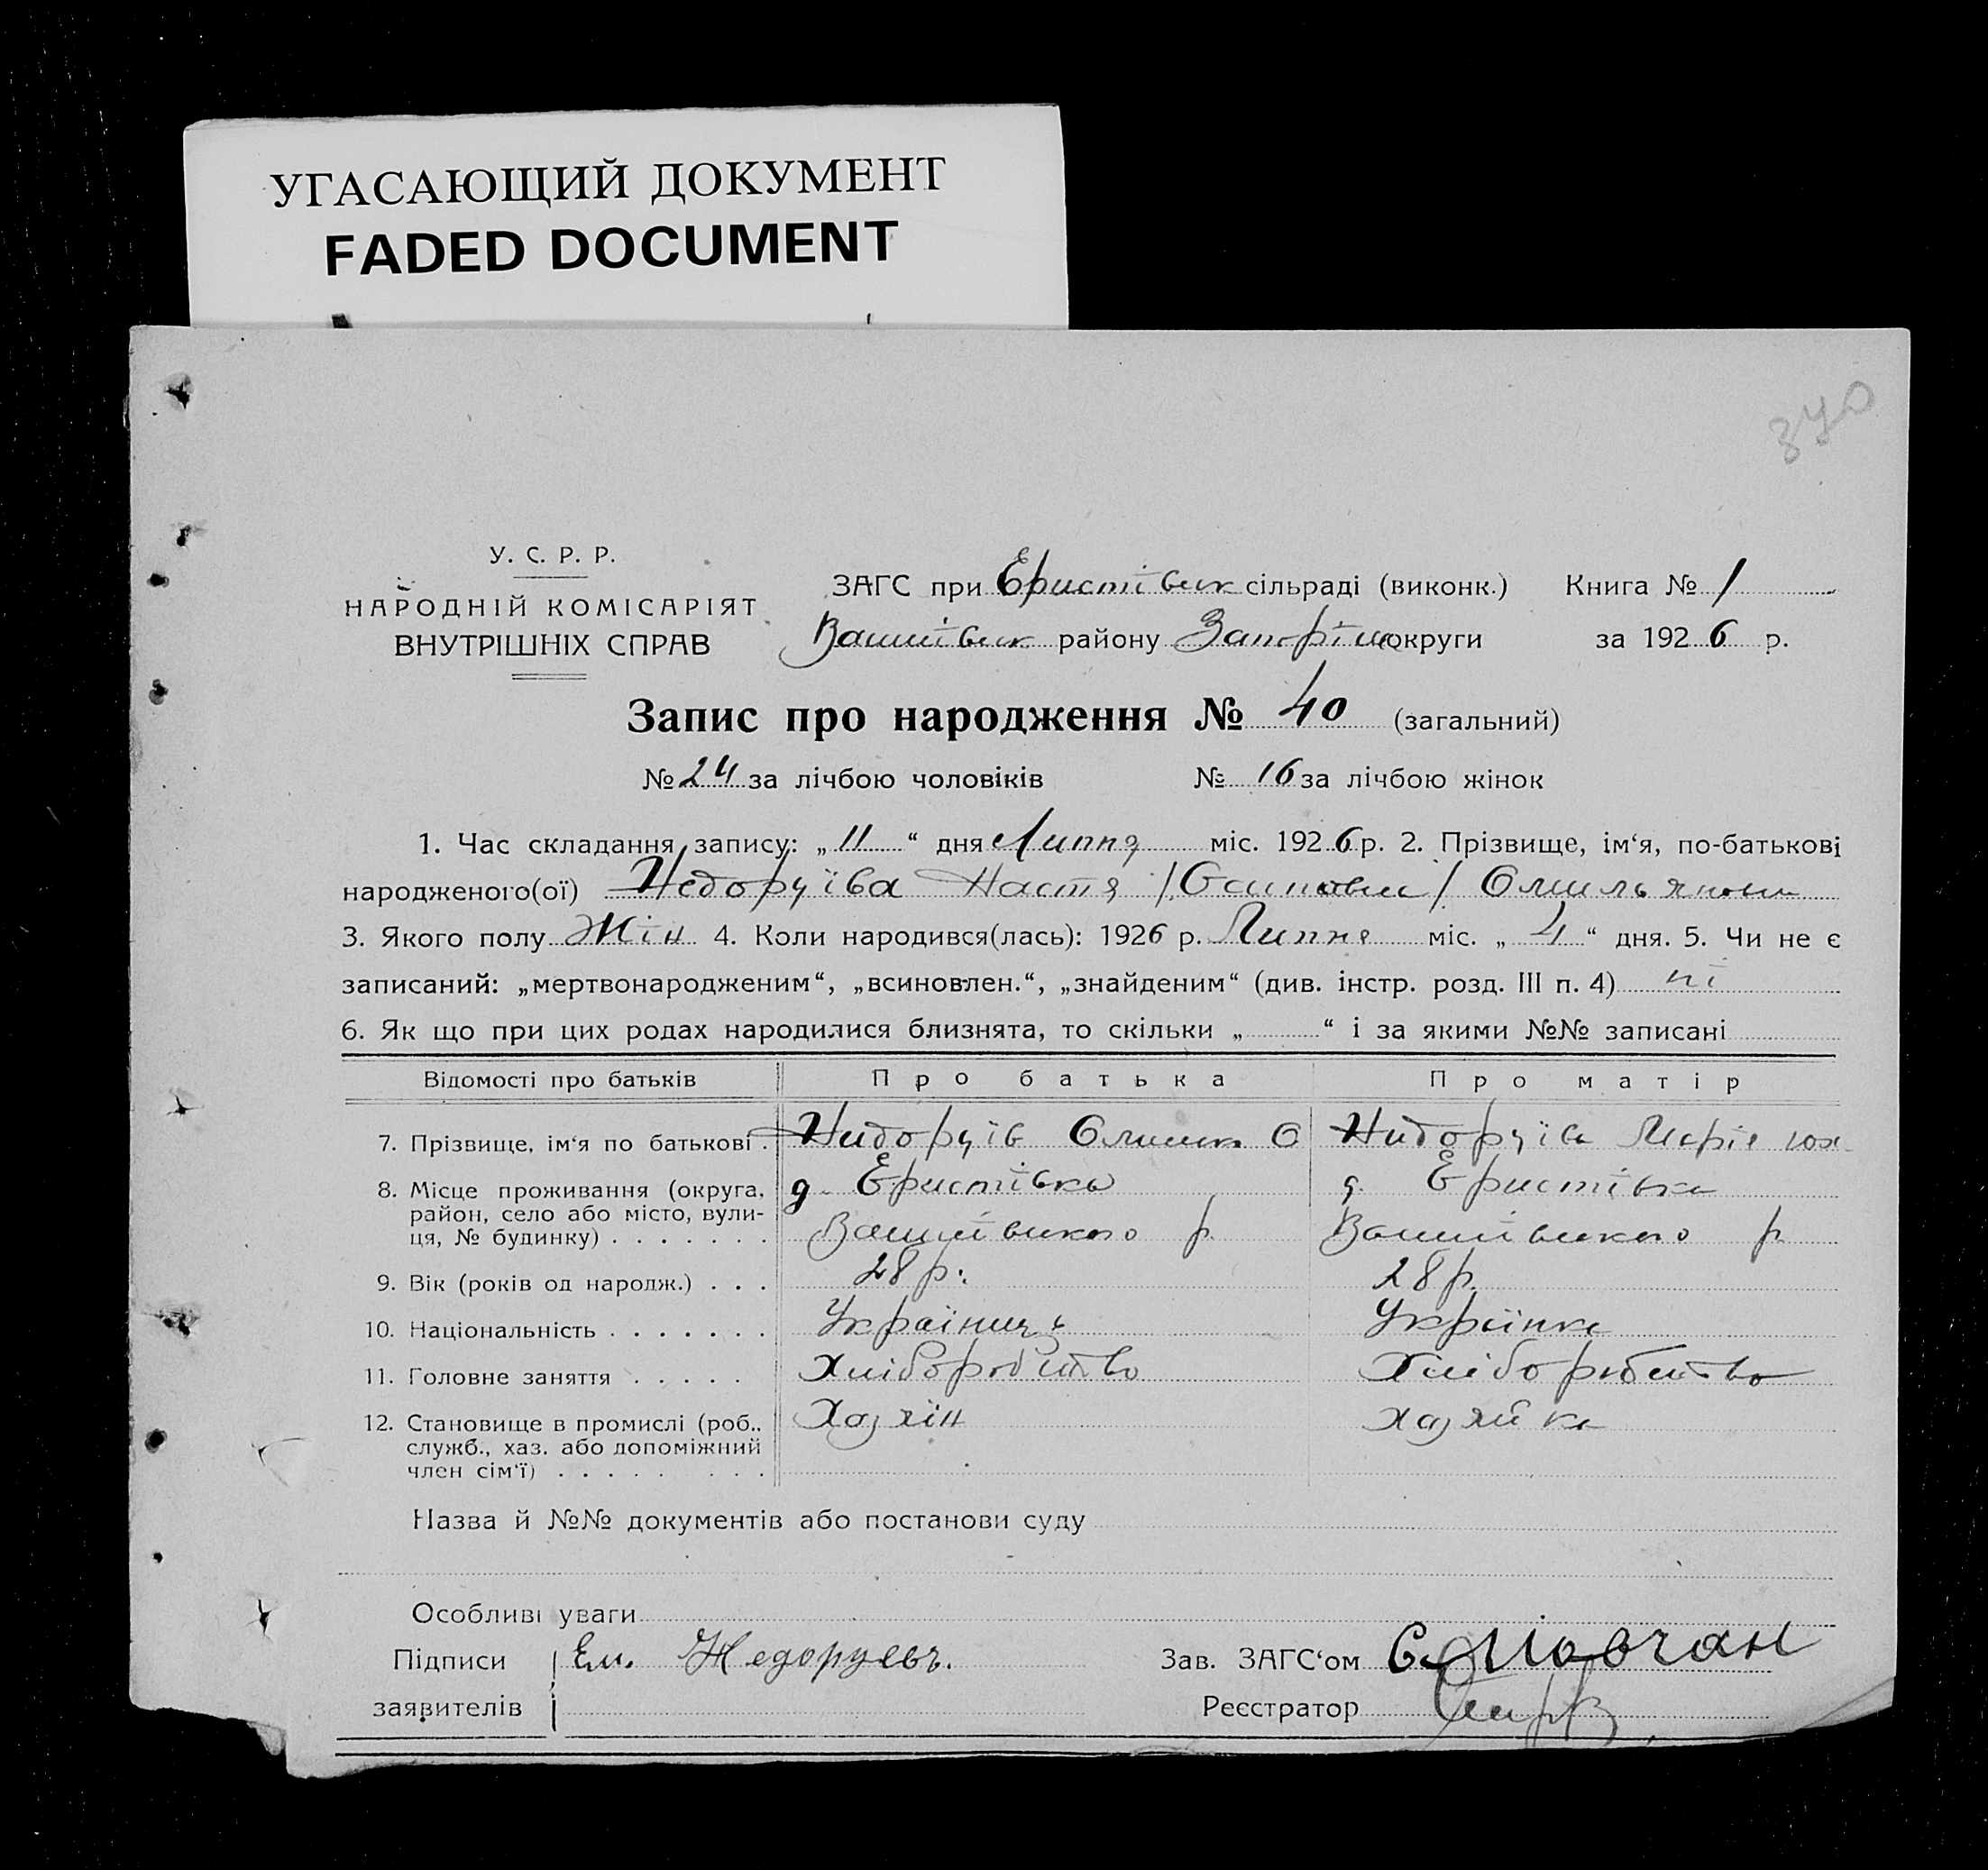 УГАСАЮЩИЙ ДОКУМЕНТ
FADED DOCUMENT
370
У. С. Р. Р.
НАРОДНІЙ КОМІСАРІЯТ
ВНУТРІШНІХ СПРАВ
ЗАГС при Еристівск сільраді (виконк.) Книга № 1
району округи за 1926 р.
Запис про народження № 40 (загальний)
№ 24 за лічбою чоловіків № 16 за лічбою жінок
1. Час складання запису: „11“ дня Липня міс. 1926 р. 2. Прізвище, ім‘я, по-батькові
народженого(ої) Недоруїва Настя
3. Якого полу Жін 4. Коли народився(лась): 1926 р. Липня міс. „4“ дня. 5. Чи не є
записаний: „мертвонародженим“, „всиновлен.“, „знайденим“ (див. інстр. розд. III п. 4) ні
6. Як що при цих родах народилися близнята, то скільки „ “ і за якими №№ записані
Відомості про батьків Про батька Про матір
7. Прізвище, ім‘я по батькові . Нидоруїв Нидоруїва Марія
8. Місце проживання (округа, д. Еристівка д. Еристівка
район, село або місто, вули-
ця, № будинку) . . . . . . . р. р.
9. Вік (років од народж.) . . . 28 р. 28 р.
10. Національність . . . . . . . Українць Українка
11. Головне заняття . . . . . Хліборобство Хліборобство
12. Становище в промислі (роб., Хазяїн хазяйка
служб., хаз. або допоміжний
член сім‘ї) . . . . . . . .
Назва й №№ документів або постанови суду
Особливі уваги
Підписи Ем. Недоруевъ. Зав. ЗАГС‘ом Є. Мовчан
заявителів Реєстратор